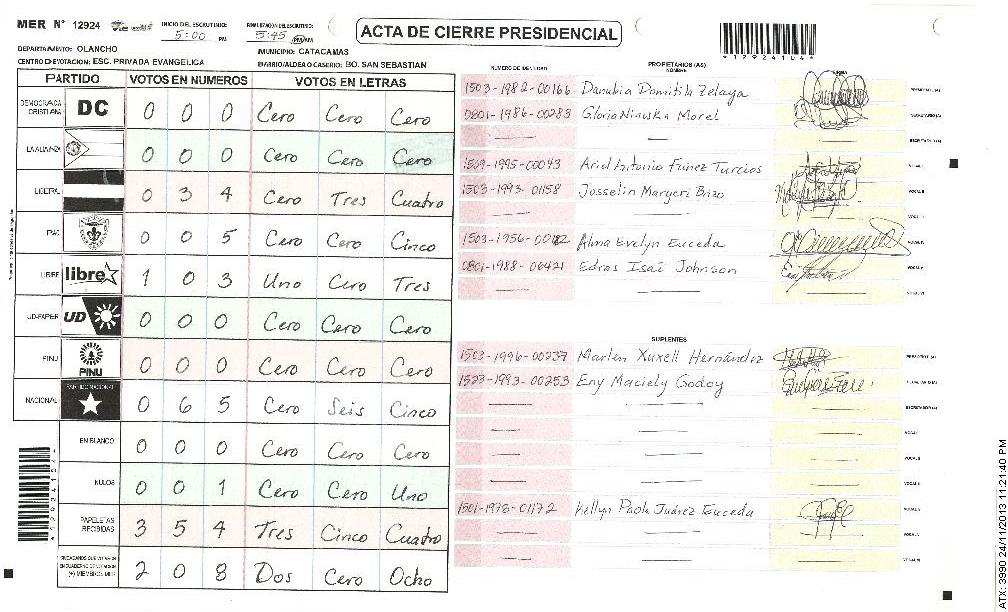 MER N° 12924
INICIO DEL ESCRUTINIO: 5:00 PM
FINALIZACION DEL ESCRUTINIO: 5:45 AM PM
ACTA DE CIERRE PRESIDENCIAL
*12924104*
DEPARTAMENTO: OLANCHO
MUNICIPIO: CATACAMAS
CENTRO DE VOTACION: ESC. PRIVADA EVANGELICA
BARRIO/ALDEA O CASERIO: BO. SAN SEBASTIAN
PARTIDO VOTOS EN NUMEROS VOTOS EN LETRAS
DEMOCRACIA CRISTIANA DC 0 0 0 Cero Cero Cero
LA ALIANZA 0 0 0 Cero Cero Cero
LIBERAL 0 3 4 Cero Tres Cuatro
PAC 0 0 5 Cero Cero Cinco
LIBRE libre 1 0 3 Uno Cero Tres
UD-FAPER UD 0 0 0 Cero Cero Cero
PINU PINU 0 0 0 Cero Cero Cero
NACIONAL PARTIDO NACIONAL 0 6 5 Cero Seis Cinco
EN BLANCO 0 0 0 Cero Cero Cero
NULOS 0 0 1 Cero Cero Uno
PAPELETAS RECIBIDAS 3 5 4 Tres Cinco Cuatro
CIUDADANOS QUE VOTARON EN CUADERNO DE VOTACION (+) MIEMBROS MER 2 0 8 Dos Cero Ocho
PROPIETARIOS (AS)
NUMERO DE IDENTIDAD NOMBRE FIRMA
1503-1982-00166 Danubia Domitila Zelaya PRESIDENTE (A)
0801-1986-00283 Gloria Niuska Morel SECRETARIO (A)
ESCRUTADOR (A)
1509-1995-00043 Ariel Antonio Fúnez Turcios VOCAL I
1503-1993-01158 Josselin Maryeri Brizo VOCAL II
VOCAL III
1503-1956-00182 Alma Evelyn Euceda VOCAL IV
0801-1988-06421 Edras Isaí Johnson VOCAL V
VOCAL VI
SUPLENTES
1503-1996-00237 Marlen Xuxell Hernández PRESIDENTE (A)
1523-1993-00253 Eny Maciely Godoy SECRETARIO (A)
ESCRUTADOR (A)
VOCAL I
VOCAL II
VOCAL III
1501-1973-01172 Kellyn Paola Juárez Euceda VOCAL IV
VOCAL V
VOCAL VI
ATX: 3990 24/11/2013 11:21:40 PM